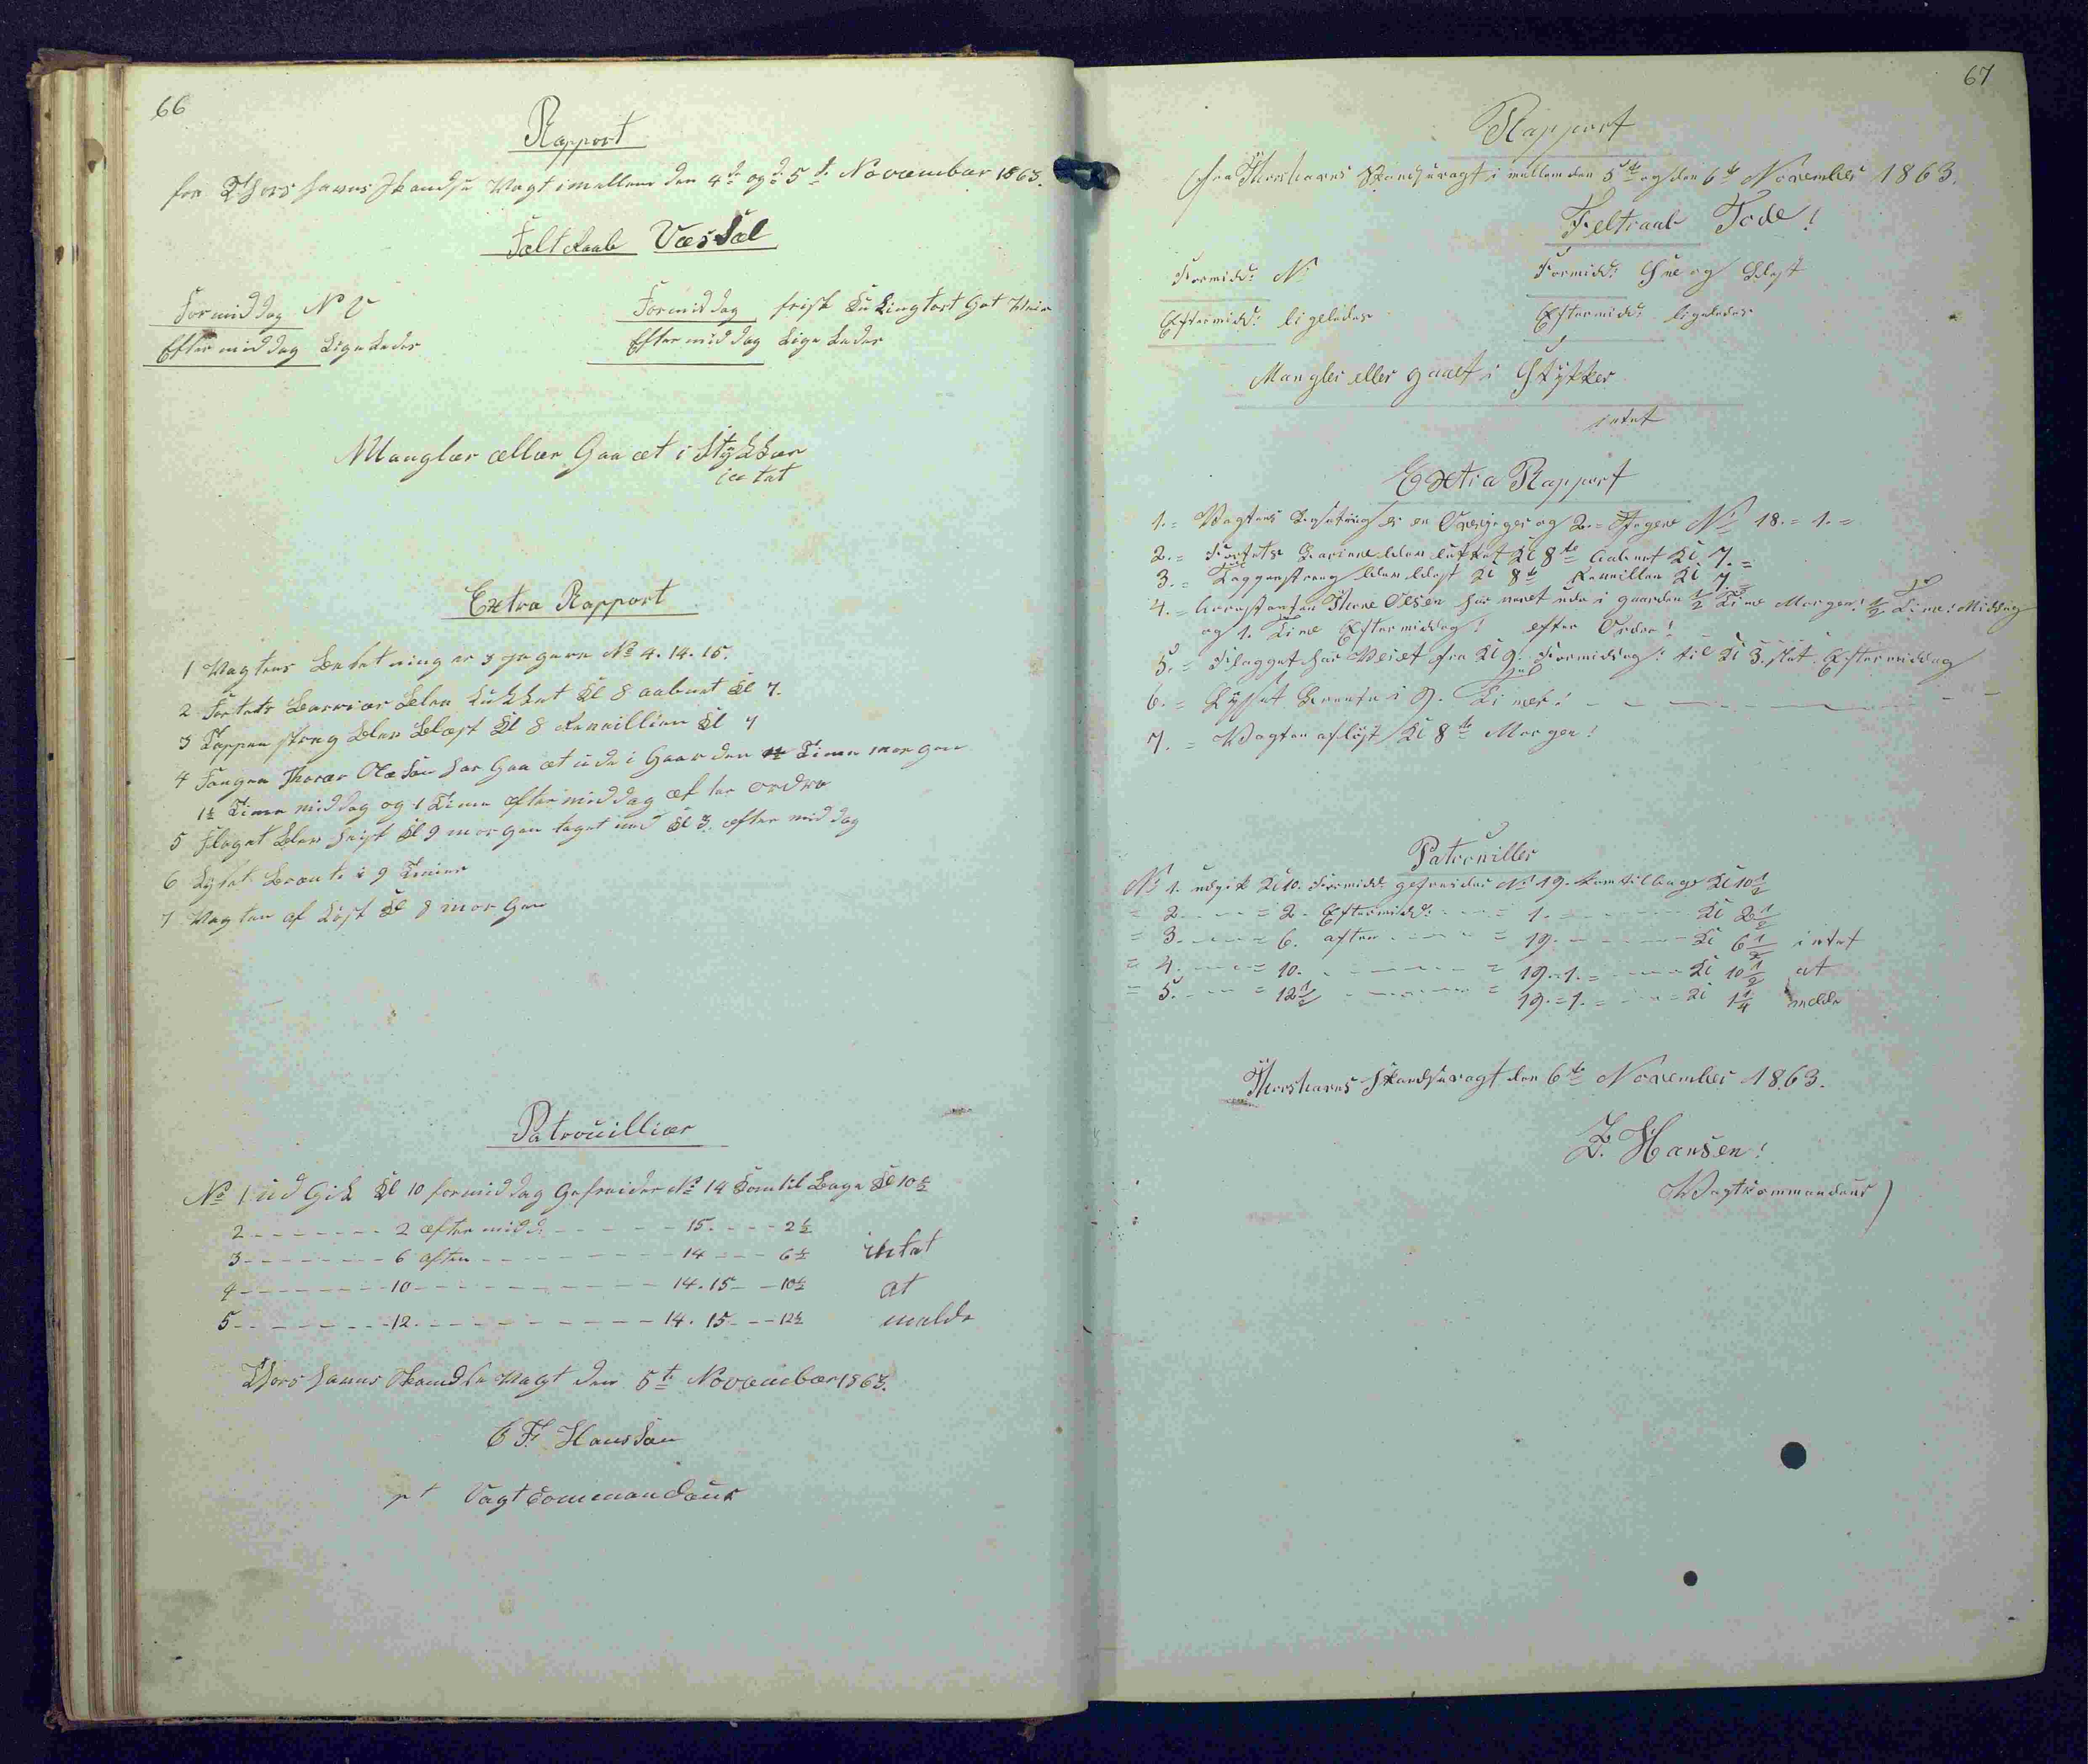 66
Rapport
for Thorshavns Skandse Vagt imellem den 4de og 5t November 1863.
Felt Raab Vessel
Formiddag N V
Formiddag frisk
Eftermiddag Lige Ledes
Eftermiddag Lige Ledes
Mangler eller Gaaet i Stykker
intet
Extra Rapport
1 Vagtens Besetning er 3 Jegere No 4. 14. 15.
2 Fortets Barrier Blev Lukket Kl 8 aabnet Kl 7.
3 Tappenstreg Blev Blæst Kl 8 Reveillien Kl 7
4 Fangen Thorer Olesen har Gaaet ude i Gaarden Time morgen
1½ Time middag og 1 Time eftermiddag efter ordre
5 Flaget Blev heist Kl 9 morgen taget ned Kl 3. eftermiddag
6 Lyset Brente i 9 Timer
7 Vagten afLøst Kl 8 morgen
Patrouillier
No 1 udGik Kl 10 formiddag Gefreider No 14 Kom tilBage Kl 10½
2 - - - - - - - 2 eftermidd: - - - - - 15. - - - - 2½
3 - - - - - - - - 6 aften - - - - - - - - - 14 - - - - 6½ intet
4 - - - - - - - - 10 - - - - - - - - - - - - 14. 15 - - 10½ at
5 - - - - - - - - 12. - - - - - - - - - - - 14. 15 - - - 12½ melde
Thorshavns Skandse Vagt den 5t November 1863.
F. Hansen
pt Vagt Commandeur
67
Rapport
fra Thorshavns Skandsevagt i mellem den 5te og den 6te November 1863.
Feltraab Tode!
Formidd: N
Formidd: Sne og Blæst
Eftermidd: ligeledes
Eftermidd: ligeledes
Mangler eller gaaet i Stykker
intet
Extra Rapport
1. = Vagtens Besætning er en Overjeger og 2. = Jegere No 18. = 1. =
2. = Fortets Bariere blev lukket Kl 8te Aabnet Kl 7. =
3. = Tappenstreg blev blæst Kl 8te Reveillen Kl 7. =
4. = Arrestanten Thore Olesen har været ude i gaarden ½ Time Morgen! ½ Time! Middag
og 1. Time Eftermiddag! efter Ordre!
5. = Flagget har Veiet fra Kl 9. Formiddag! til Kl 3. slet. Eftermiddag
6. = Lyset Brente i 9. Timer! - - - - -
7. = Vagten afløst Kl 8te Morgen!
Patrouiller
No 1. udgik Kl 10. Formidd: gefreider No 19. kom tilbage Kl 10½
= 2. - - - = 2. Eftermidd: - - - = 1. = - - - - - Kl 2½
= 3. - - - = 6. aften - - - - = 19. - - - - - Kl 6½ intet
= 4. - - - = 10. - - - - - - = 19. = 1. = - - - - Kl 10½ at
= 5. - - - = 12½ - - - - - - = 19. = 1. = - - - = Kl 1¼ melde
Thorshavns Skandsevagt den 6te November 1863.
Hansen!
Vagtkommandeur